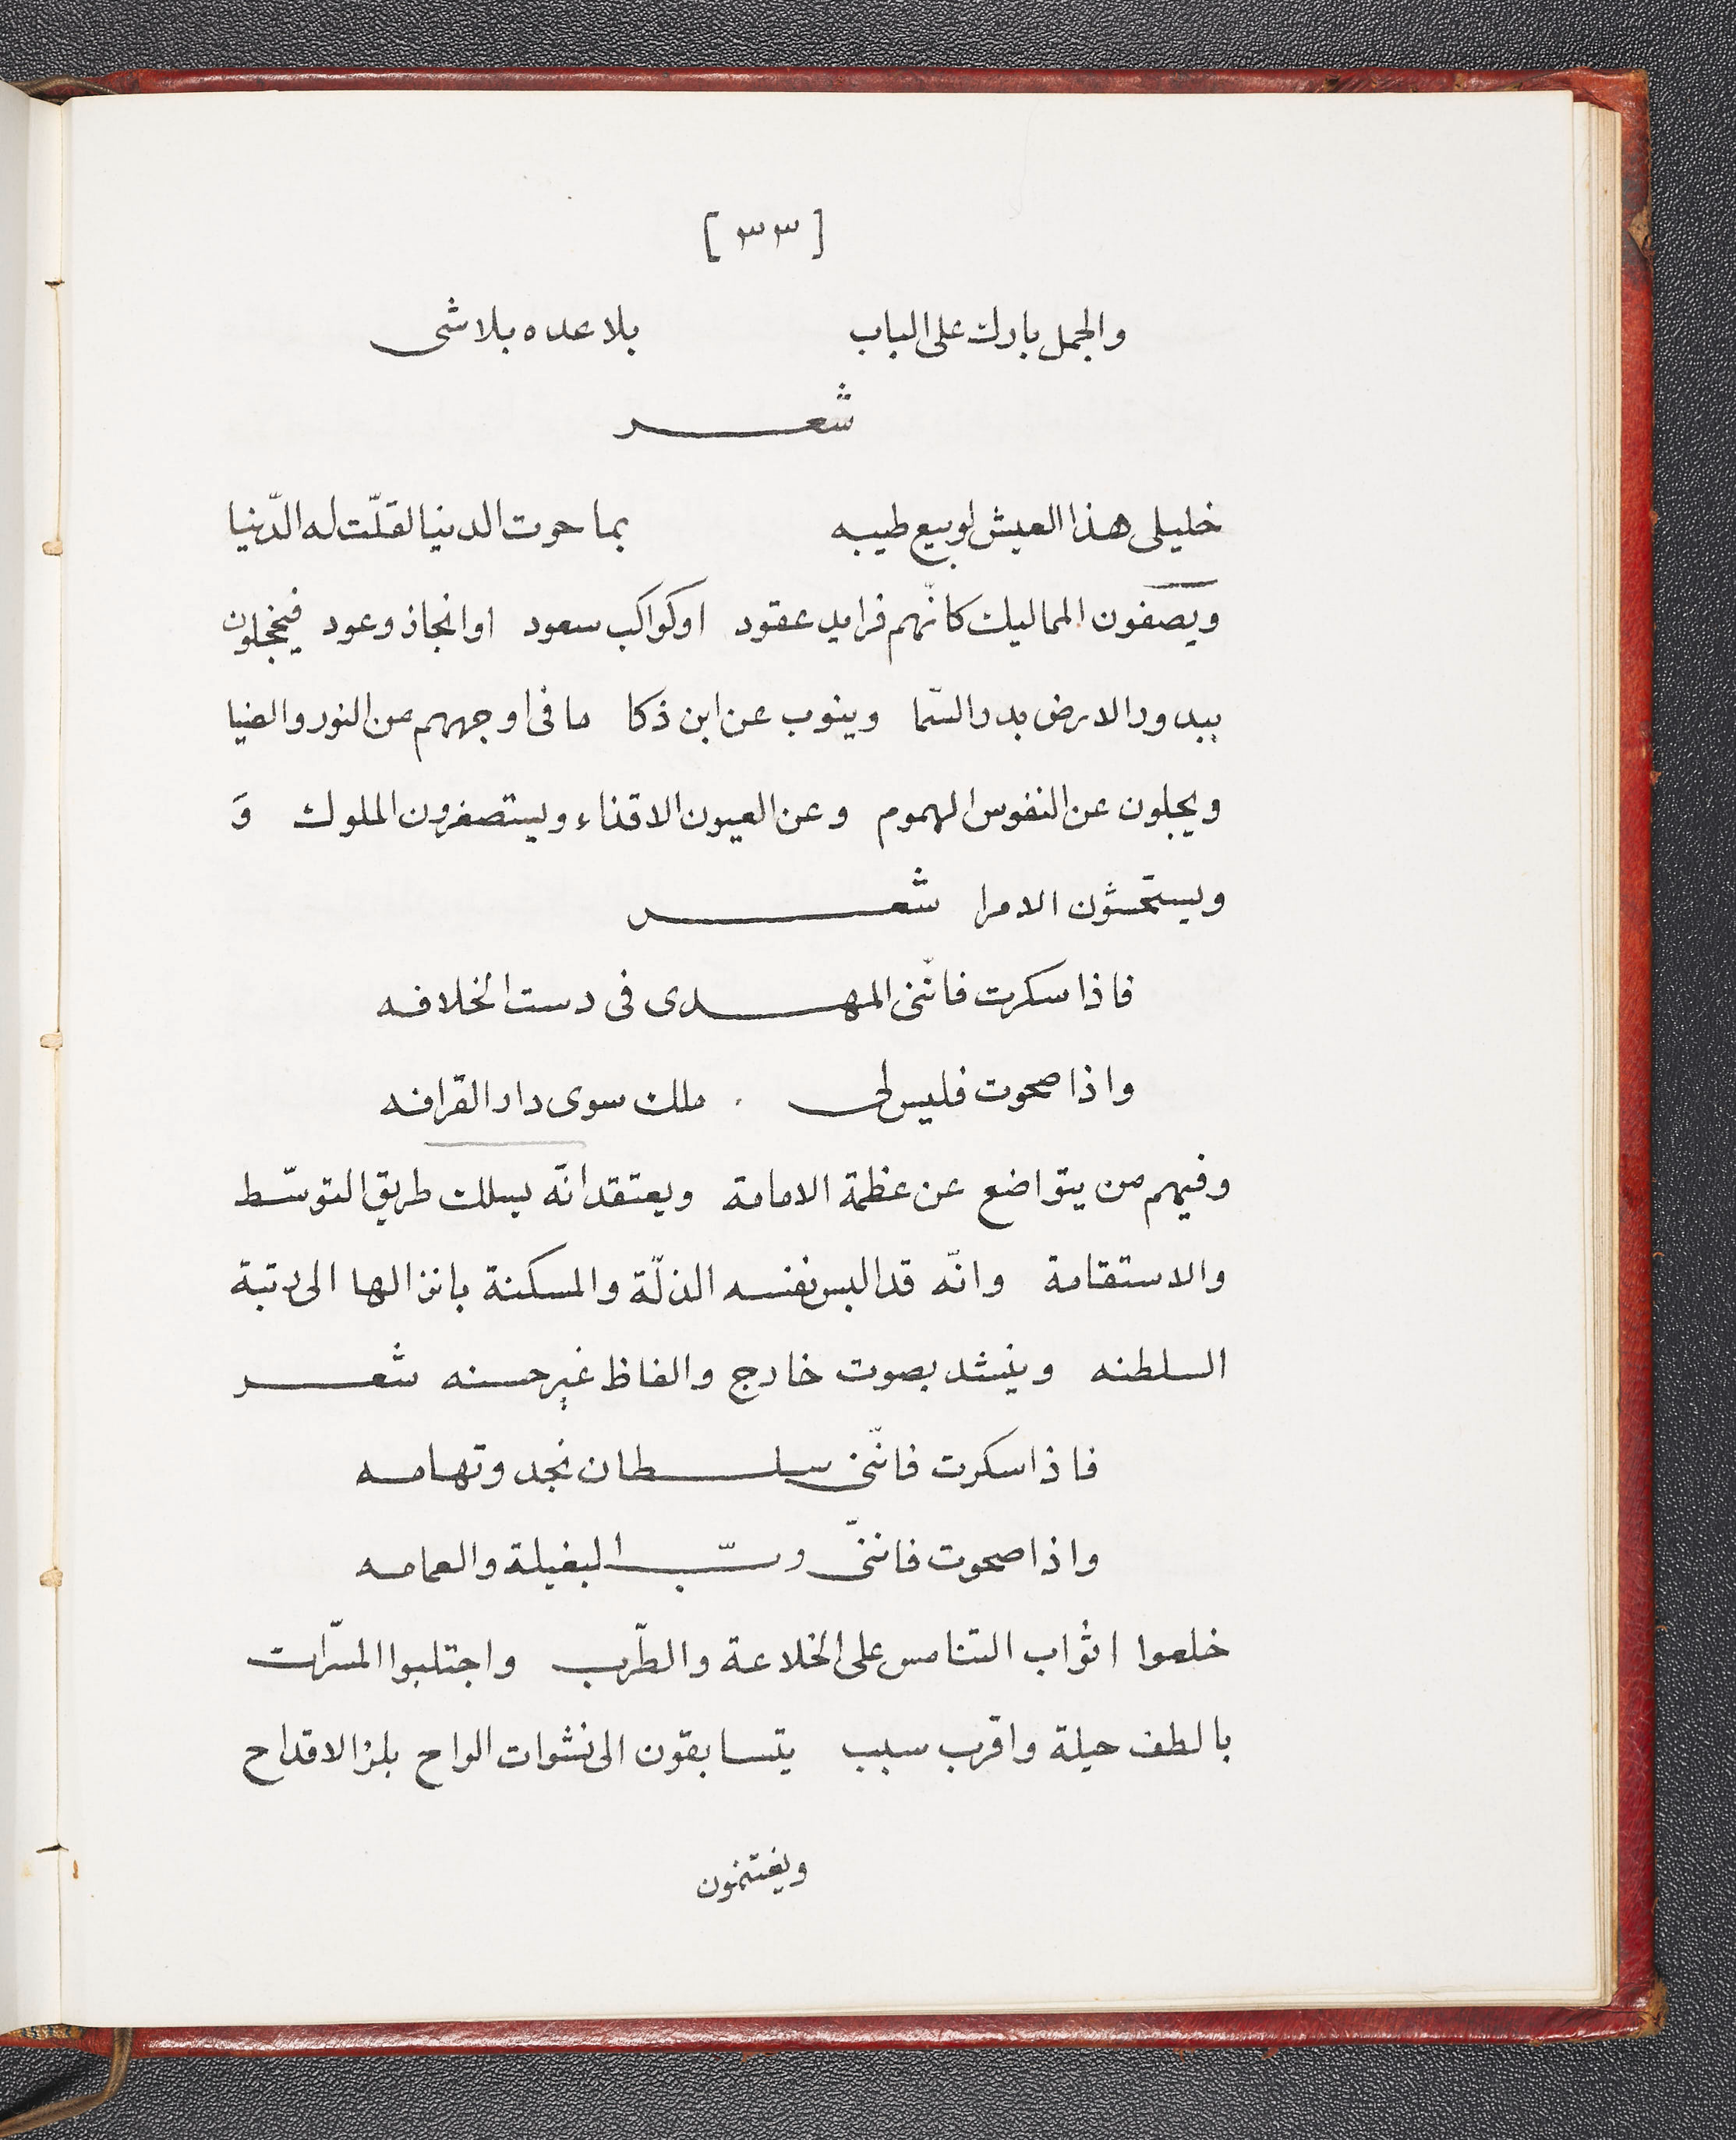 [٣٣]
والجمل بارك على الباب بلا عده بلا شى
شعر
خليلى هذا العيش لو بيع طيبه بما حوت الدنيا لقلّت له الدّنيا
ويصفون المماليك كانّهم فرايد عقود او كواكب سعود او انجاذ وعود فيخجلون
ببدور الارض بدر السّما وينوب عن ابن ذكا ما فى اوجههم من النور والضيا
ويجلون عن النفوس الهموم وعن العيون الاقذاء ويستصغرون الملوك وَ
ويستحسّون الامرا شعر
فاذا سكرت فانّنى المهدى فى دست الخلافه
واذا صحوت فليس لى ملك سوى دار القرافه
وفيهم من يتواضع عن عظمة الامامة ويعتقد انّه يسلك طريق التوسّط
والاستقامة وانّه قد البس نفسه الذلّة والمسكنة بانزالها الى رتبة
السلطنه وينشد بصوت خارج والفاظ غير حسنه شعر
فاذا سكرت فانّنى سلطان نجد وتهامه
واذا صحوت فاننّى ربّ البغيلة والعمامه
خلعوا اثواب التنامس على الخلاعة والطّرب واجتلبوا المسّرات
بالطف حيلة واقرب سبب يتسابقون الى نشوات الراح بلز الاقداح
ويغتنمون